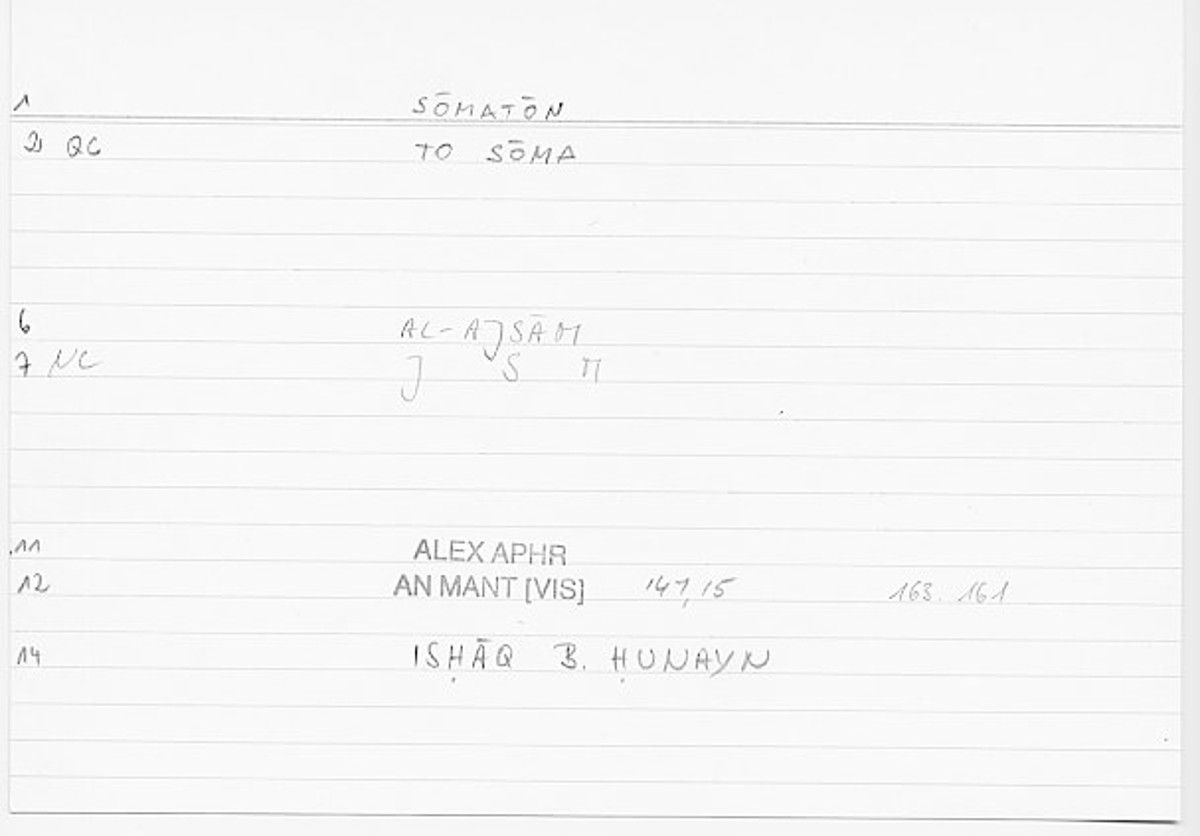 1 SŌMATŌN
2 QC TO SŌMA
6 AL-AJSĀM
7 NC J S M
11 ALEX APHR
12 AN MANT [VIS] 147,15 163. 161
14 ISḤĀQ B. ḤUNAYN